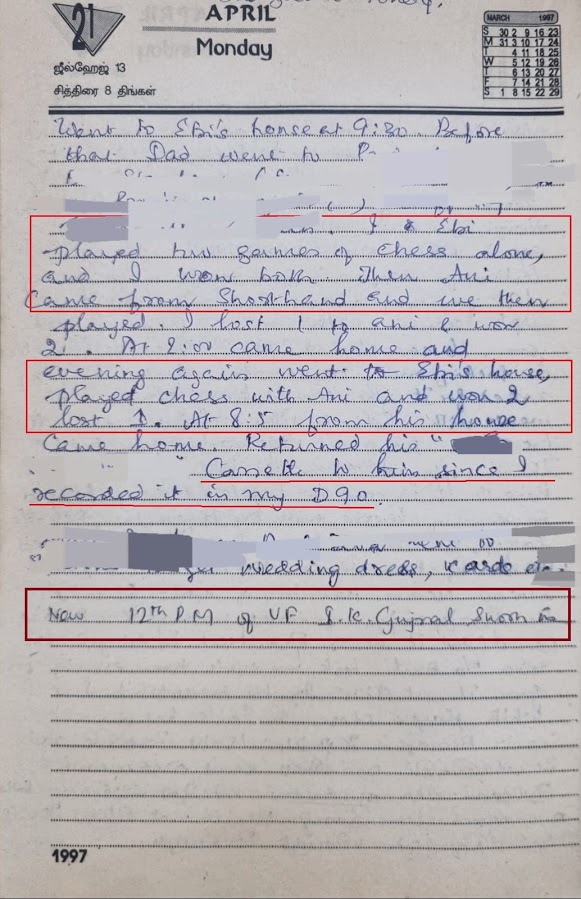 21
APRIL
Monday
ஜீல்ஹேஜ் 13
சித்திரை 8 திங்கள்
MARCH 1997
S 30 2 9 16 23
M 31 3 10 17 24
T 4 11 18 25
W 5 12 19 26
T 6 13 20 27
F 7 14 21 28
S 1 8 15 22 29
Went to Ebi's house at 9:30. Before
that Dad went to
I & Ebi
played two games of chess alone,
and I won both. Then Ani
came from Shorthand and we then
played. I lost 1 to ani & won
2. At came home and
evening again went to Ebi's house,
played chess with Ani and won 2
lost 1. At 8:5 from his house
came home. Returned his "
" Cassette to him since I
recorded it in my D90.
wedding dress, cards
New 12th P.M of UF I.K. Gujral Sworn in
1997